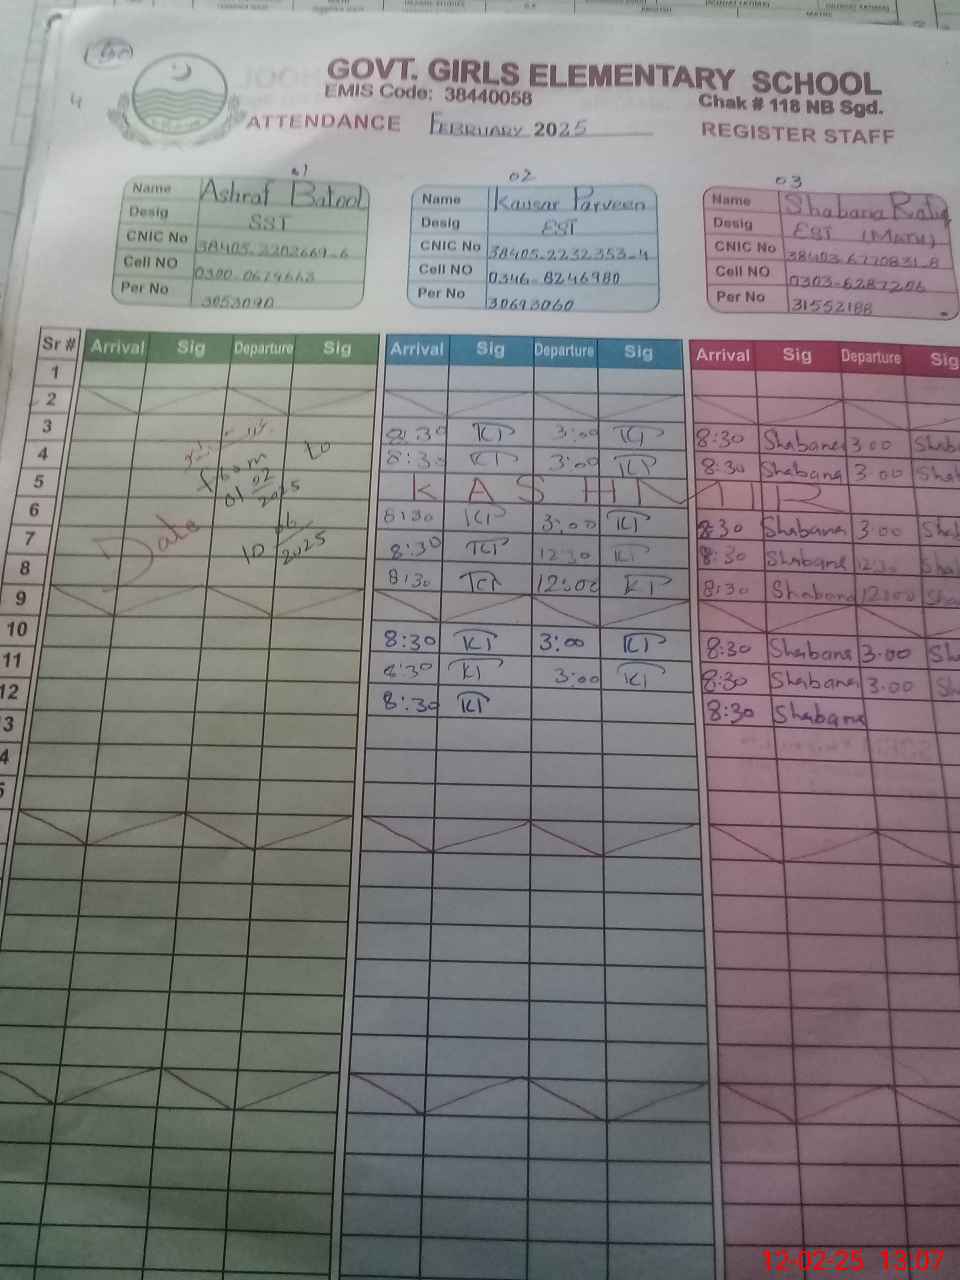 GOVT. GIRLS ELEMENTARY SCHOOL
EMIS Code: 38440058
Chak # 118 NB Sgd.
ATTENDANCE FEBRUARY 2025 REGISTER STAFF
01 02 03
Name Ashraf Batool
Desig SST
CNIC No
Cell NO
Per No
Name Kausar Parveen
Desig EST
CNIC No 38405-2232353-4
Cell NO 0346-8246980
Per No 30693060
Name Shabana Rafiq
Desig EST (Math)
CNIC No 38403-6220831-8
Cell NO 0303-6287206
Per No 31552188
Sr # Arrival Sig Departure Sig Arrival Sig Departure Sig Arrival Sig Departure Sig
1
2
3 8:30 KP 3:00 KP 8:30 Shabana 3:00
4 8:30 KP 3:00 KP 8:30 Shabana 3:00
5 KASHMIR
6 8:30 KP 3:00 KP 8:30 Shabana 3:00
7 8:30 KP 12:30 KP 8:30 Shabana 12:30
8 8:30 KP 12:00 KP 8:30 Shabana 12:00
9
10 8:30 KP 3:00 KP 8:30 Shabana 3:00
11 8:30 KP 3:00 KP 8:30 Shabana 3:00
12 8:30 KP 8:30 Shabana
from to
01 02 2025
Date
10 2025
12-02-25 13:07